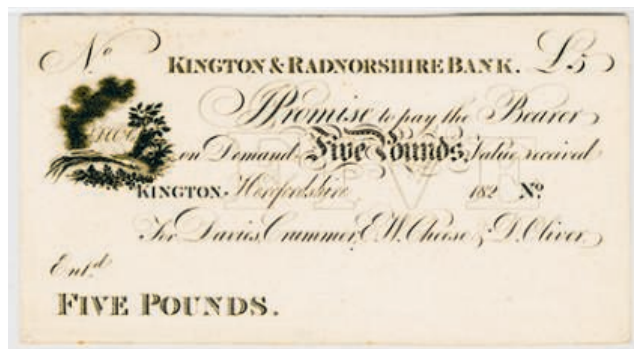 No KINGTON & RADNORSHIRE BANK. £5
FIVE
I Promise to pay the Bearer
on Demand Five Pounds, Value received
KINGTON, Herefordshire 182 No
For Davies, Crummer, E.W. Cheese, & D. Oliver,
Entd.
FIVE POUNDS.